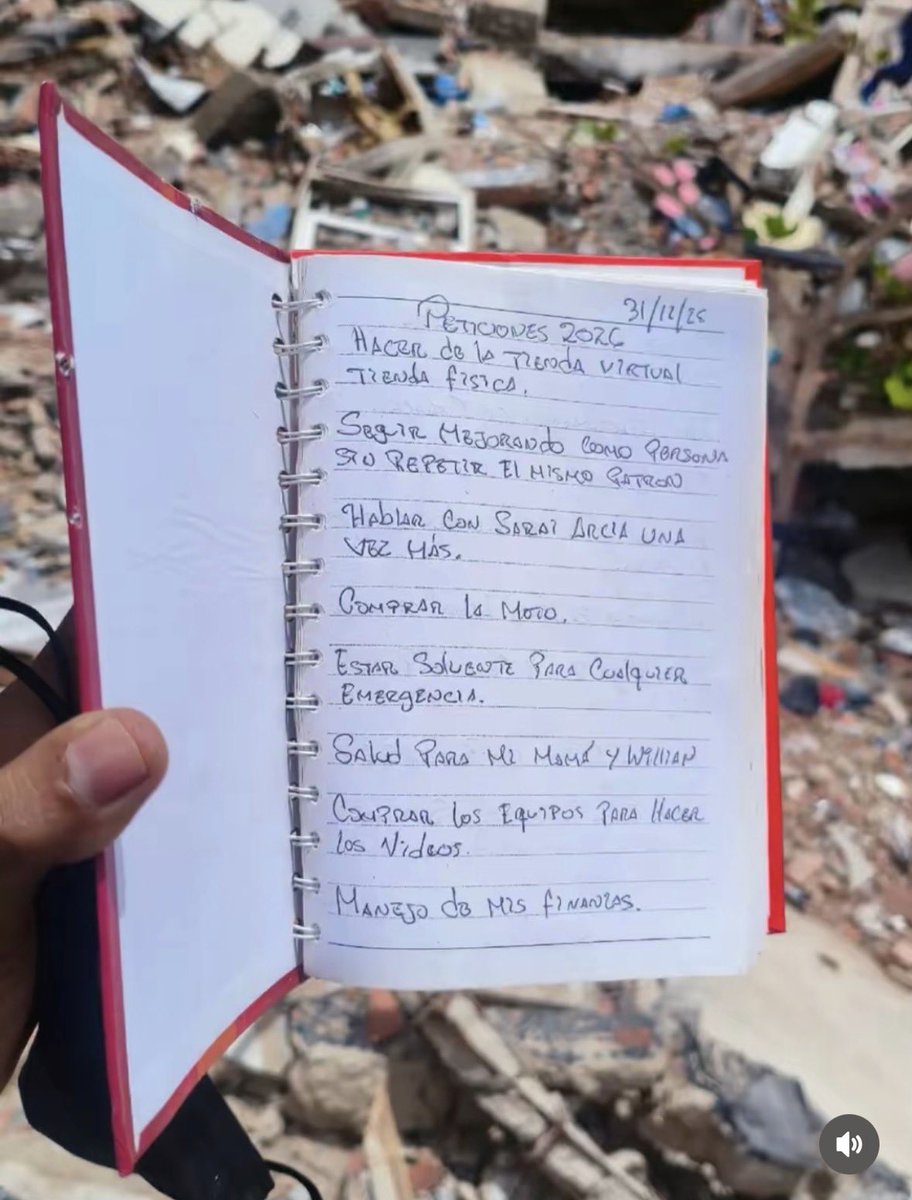 31/12/25
PETICIONES 2026
HACER de la TIENDA VIRTUAL
TIENDA FISICA.
SEGUIR MEJORANDO COMO PERSONA
SIN REPETIR El MISMO PATRON
HABLAR CON SARAI ARCIA UNA
VEZ MÁS.
COMPRAR la MOTO.
ESTAR SOLVENTE PARA CUALQUIER
EMERGENCIA.
SALUD PARA MI MAMÁ Y WILLIAN
COMPRAR los EQUIPOS PARA HACER
los Videos.
MANEJO de MIS FINANZAS.